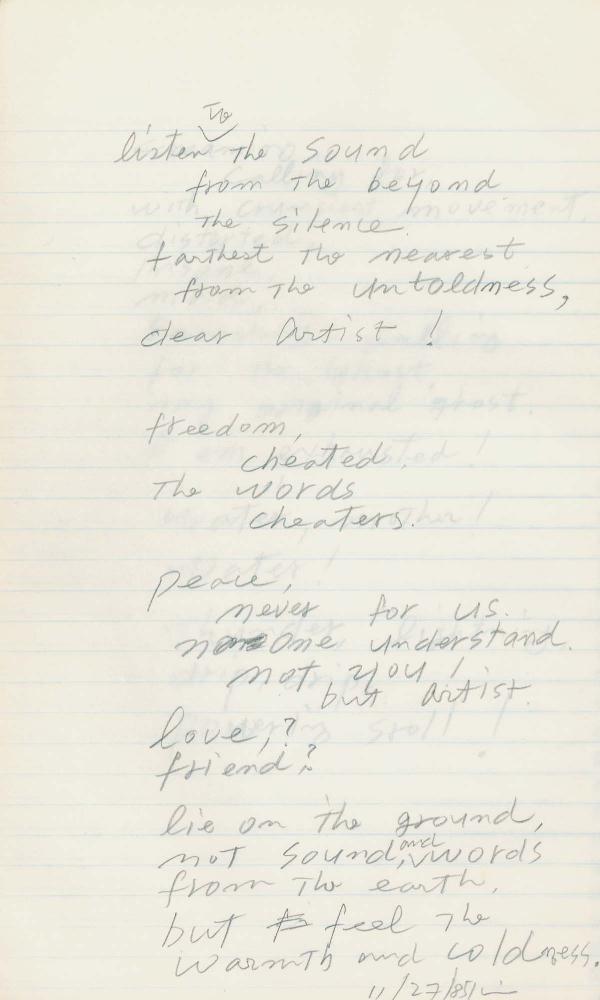 listen to the sound
from the beyond
the silence.
farthest the nearest
from the untoldness,
dear artist!
freedom,
cheated.
the words
cheaters.
peace,
never for us.
no one understand.
not you!
but artist.
love,?
friend?
lie on the ground,
not sound, and words
from the earth,
but feel the
warmth and coldness.
11/27/85